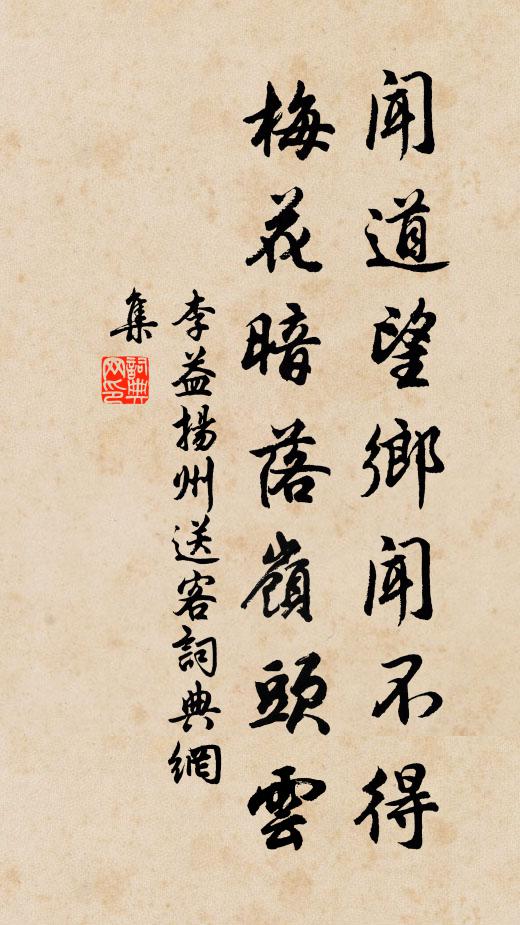 聞道望鄉聞不得
梅花暗落嶺頭雲
李益揚州送客詞典網
集
詞典
网印